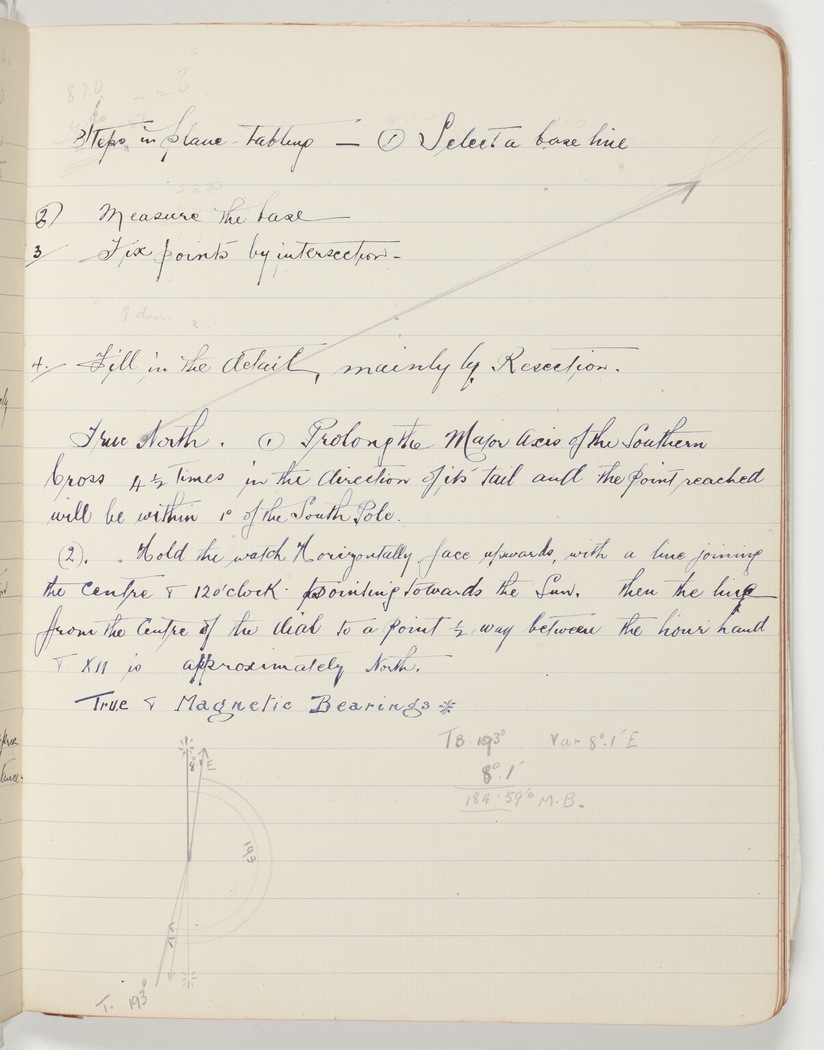 Steps in plane-tabling — ① Select a base line
② Measure the base
3/ Fix points by intersection -
4/ Fill in the detail, mainly by Resection.
True North. ① Prolong the Major Axis of the Southern
Cross 4½ times in the direction of its tail and the point reached
will be within 1° of the South Pole.
②. Hold the watch Horizontally face upwards, with a line joining
the centre & 12 o'clock pointing towards the Sun. then the line
from the Centre of the dial to a point ½ way between the hour hand
& XII is approximately North.
True & Magnetic Bearings
T B. 193° Var 8°.1' E
8°.1'
184.59° M.B.
8° 1' E
193
T. 193°